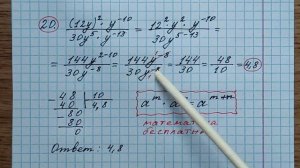 20. (12y)² · y⁻¹⁰ / 30y⁵ · y⁻¹³ = 12² · y² · y⁻¹⁰ / 30y⁵⁻¹³ =
= 144y²⁻¹⁰ / 30y⁻⁸ = 144y⁻⁸ / 30y⁻⁸ = 144/30 = 48/10 = 4,8
48 | 10
40 | 4,8
80
80
0
aᵐ · aⁿ = aᵐ⁺ⁿ
математика
бесплатно
Ответ: 4,8